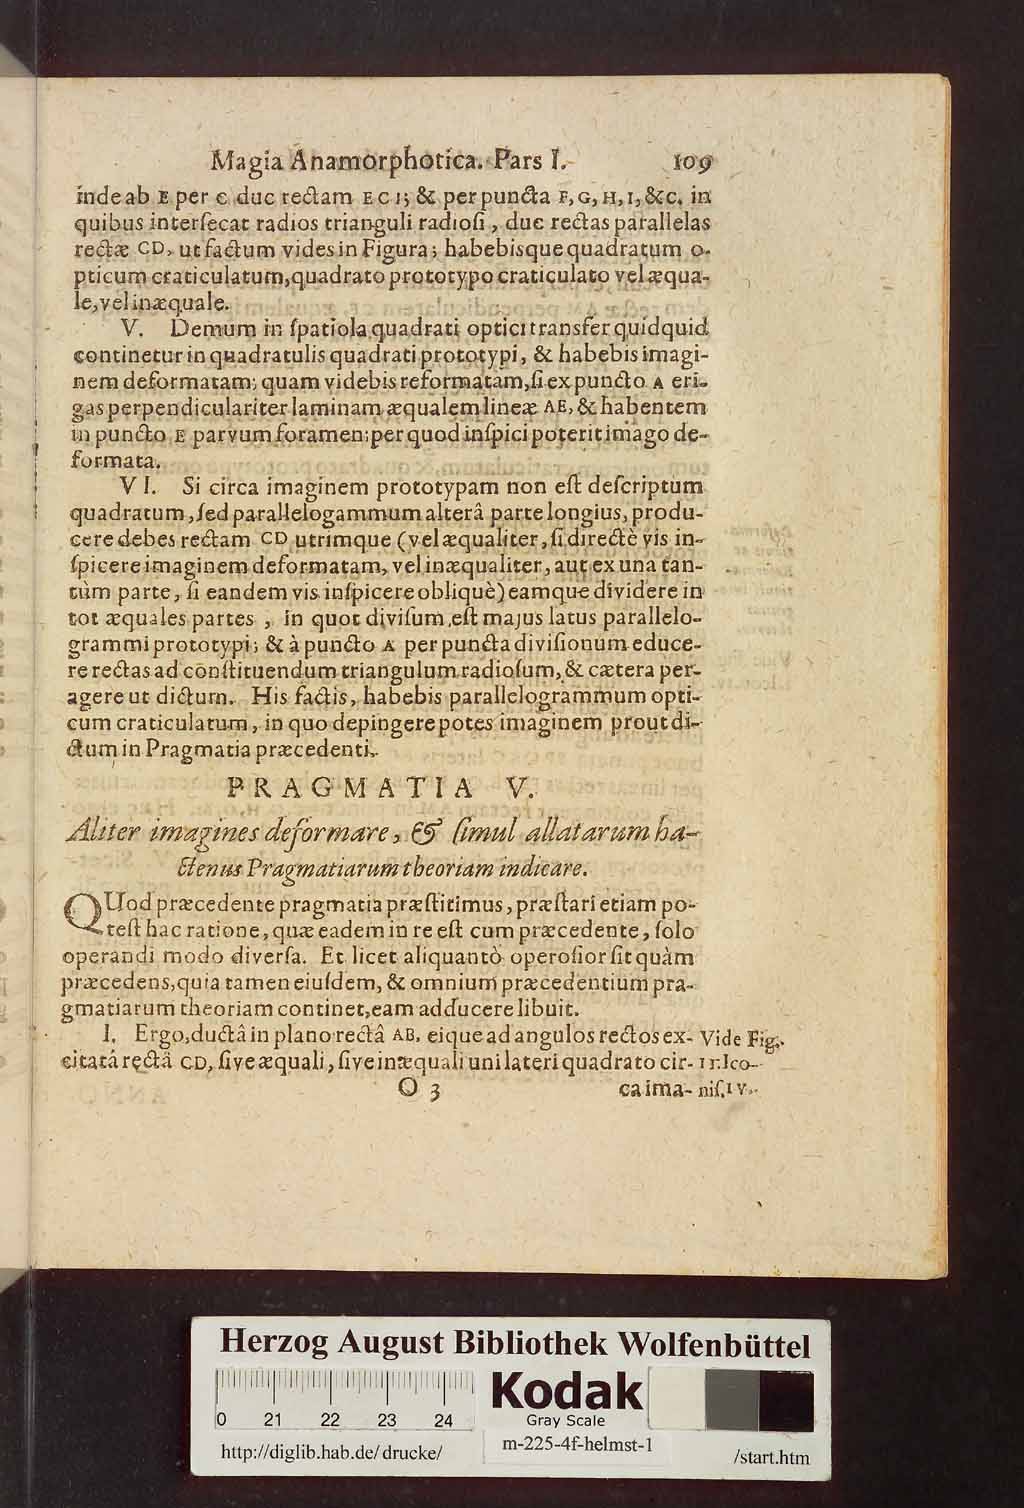 Magia Anamorphotica. Pars I. 109
inde ab E per C duc rectam E C I; & per puncta F, G, H, I, &c. in
quibus interſecat radios trianguli radioſi, duc rectas parallelas
rectæ CD, ut factum vides in Figura; habebisque quadratum o-
pticum craticulatum, quadrato prototypo craticulato vel æqua-
le, vel inæquale.
V. Demum in ſpatiola quadrati optici transfer quidquid
continetur in quadratulis quadrati prototypi, & habebis imagi-
nem deformatam; quam videbis reformatam, ſi ex puncto A eri-
gas perpendiculariter laminam æqualem lineæ AE, & habentem
in puncto E parvum foramen; per quod inſpici poterit imago de-
formata.
VI. Si circa imaginem prototypam non eſt deſcriptum
quadratum, ſed parallelogammum alterâ parte longius, produ-
cere debes rectam CD utrimque (vel æqualiter, ſi directè vis in-
ſpicere imaginem deformatam, vel inæqualiter, aut ex una tan-
tùm parte, ſi eandem vis inſpicere obliquè) eamque dividere in
tot æquales partes, in quot diviſum eſt majus latus parallelo-
grammi prototypi; & à puncto A per puncta diviſionum educe-
re rectas ad conſtituendum triangulum radioſum, & cætera per-
agere ut dictum. His factis, habebis parallelogrammum opti-
cum craticulatum, in quo depingere potes imaginem prout di-
ctum in Pragmatia præcedenti.
PRAGMATIA V.
Aliter imagines deformare, & ſimul allatarum ha-
ctenus Pragmatiarum theoriam indicare.
QUod præcedente pragmatia præſtitimus, præſtari etiam po-
teſt hac ratione, quæ eadem in re eſt cum præcedente, ſolo
operandi modo diverſa. Et licet aliquantò operoſior ſit quàm
præcedens, quia tamen eiuſdem, & omnium præcedentium pra-
gmatiarum theoriam continet, eam adducere libuit.
I. Ergo, ductâ in plano rectâ AB, eique ad angulos rectos ex-
citatâ rectâ CD, ſive æquali, ſive inæquali uni lateri quadrato cir-
O 3 ca ima-
Vide Fig.
11. Ico-
niſ. IV.
Herzog August Bibliothek Wolfenbüttel
0 21 22 23 24
Kodak
Gray Scale
http://diglib.hab.de/drucke/
m-225-4f-helmst-1
/start.htm